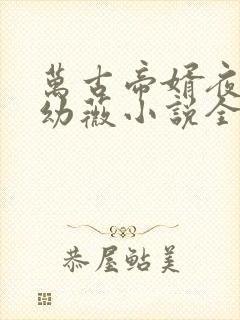 萬古帝婿夜
幼薇小説全
恭屋鲇美